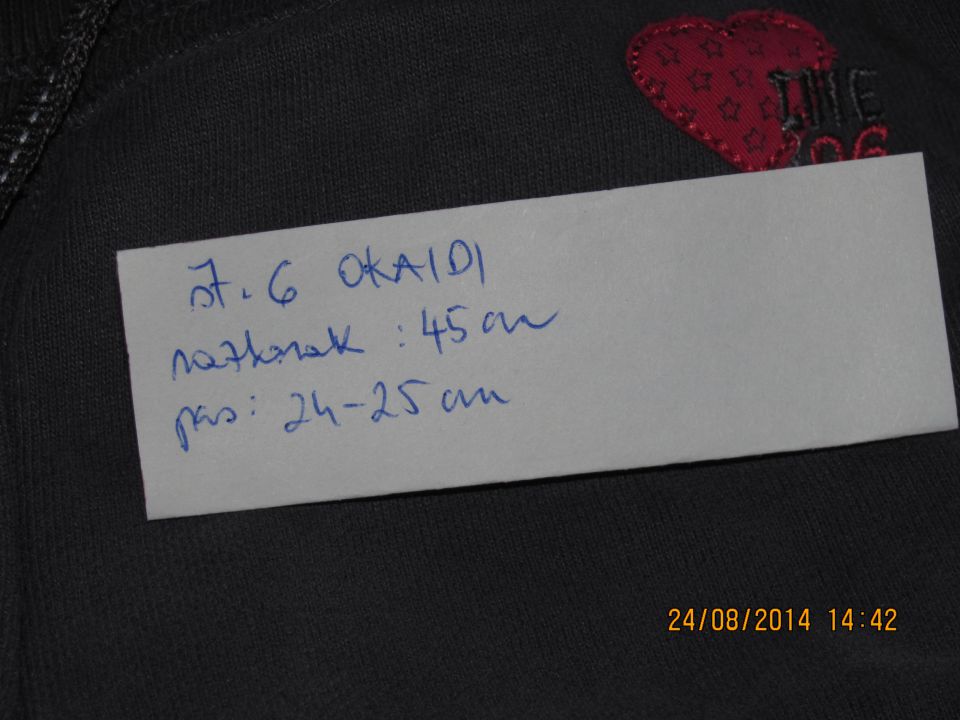 IME
'96
št. 6 OKAIDI
razkorak : 45 cm
pas: 24-25 cm
24/08/2014 14:42